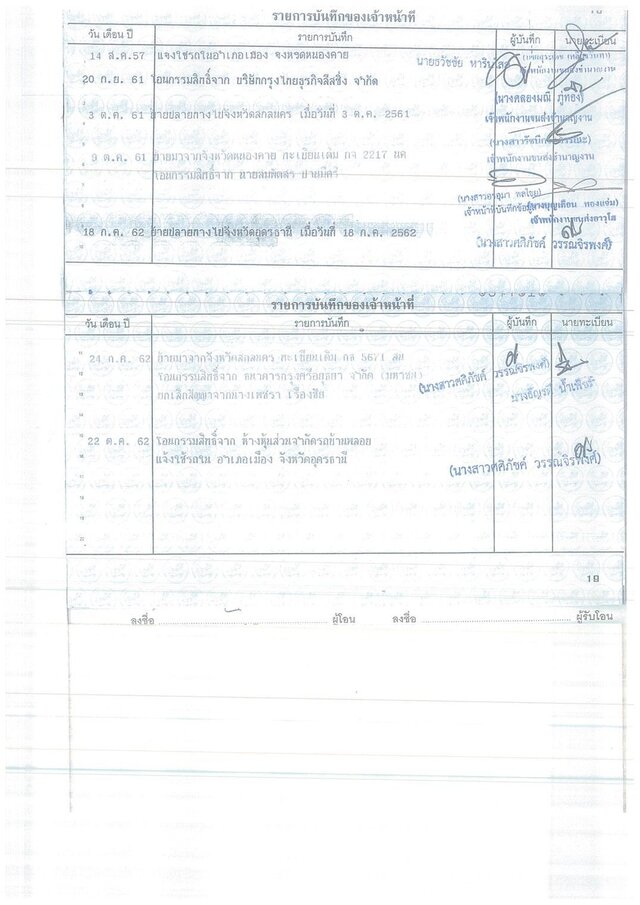 รายการบันทึกของเจ้าหน้าที่
วัน เดือน ปี รายการบันทึก ผู้บันทึก นายทะเบียน
14 ส.ค.57 แจ้งใช้รถในอำเภอเมือง จังหวัดหนองคาย
นายธวัชชัย
20 ก.ย. 61 โอนกรรมสิทธิ์จาก บริษัทกรุงไทยธุรกิจลีสซิ่ง จำกัด
3 ต.ค. 61 ย้ายปลายทางไปจังหวัดสกลนคร เมื่อวันที่ 3 ต.ค. 2561
เจ้าพนักงานขนส่งชำนาญงาน
9 ต.ค. 61 ย้ายมาจากจังหวัดหนองคาย ทะเบียนเดิม กจ 2217 นค
เจ้าพนักงานขนส่งชำนาญงาน
โอนกรรมสิทธิ์จาก นาย
เจ้าพนักงานขนส่งอาวุโส
18 ก.ค. 62 ย้ายปลายทางไปจังหวัดอุดรธานี เมื่อวันที่ 18 ก.ค. 2562
(นางสาวศศิภัชค์ วรรณจิรพงศ์)
รายการบันทึกของเจ้าหน้าที่
วัน เดือน ปี รายการบันทึก ผู้บันทึก นายทะเบียน
24 ก.ค. 62 ย้ายมาจากจังหวัดสกลนคร ทะเบียนเดิม กล 5671 สน
โอนกรรมสิทธิ์จาก ธนาคารกรุงศรีอยุธยา จำกัด (มหาชน)
(นางสาวศศิภัชค์ วรรณจิรพงศ์)
ยกเลิกสัญญาจากนางเพชรา เรืองชัย
22 ต.ค. 62 โอนกรรมสิทธิ์จาก ห้างหุ้นส่วนจำกัดรถบ้านพลอย
แจ้งใช้รถใน อำเภอเมือง จังหวัดอุดรธานี
(นางสาวศศิภัชค์ วรรณจิรพงศ์)
19
ลงชื่อ ผู้โอน ลงชื่อ ผู้รับโอน